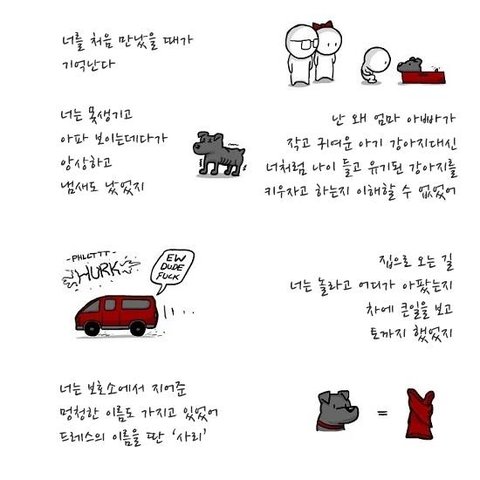 너를 처음 만났을 때가
기억난다
너는 못생기고
아파 보이는데다가
앙상하고
냄새도 났었지
난 왜 엄마 아빠가
작고 귀여운 아기 강아지대신
너처럼 나이 들고 유기된 강아지를
키우자고 하는지 이해할 수 없었어
-PHLLTTT-
HURK
EW
DUDE
FUCK
집으로 오는 길
너는 놀라고 어디가 아팠는지
차에 큰일을 보고
토까지 했었지
너는 보호소에서 지어준
멍청한 이름도 가지고 있었어
드레스의 이름을 딴 '사리'
=